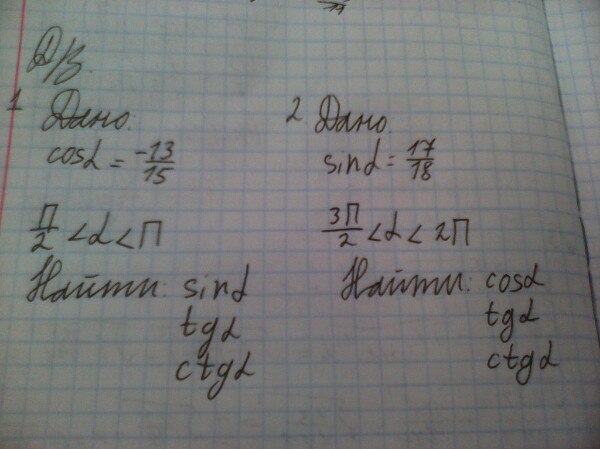 Д/з.
1. Дано.
cosα = -13/15
П/2 < α < П
Найти: sinα
tgα
ctgα
2. Дано.
sinα = 17/18
3П/2 < α < 2П
Найти: cosα
tgα
ctgα